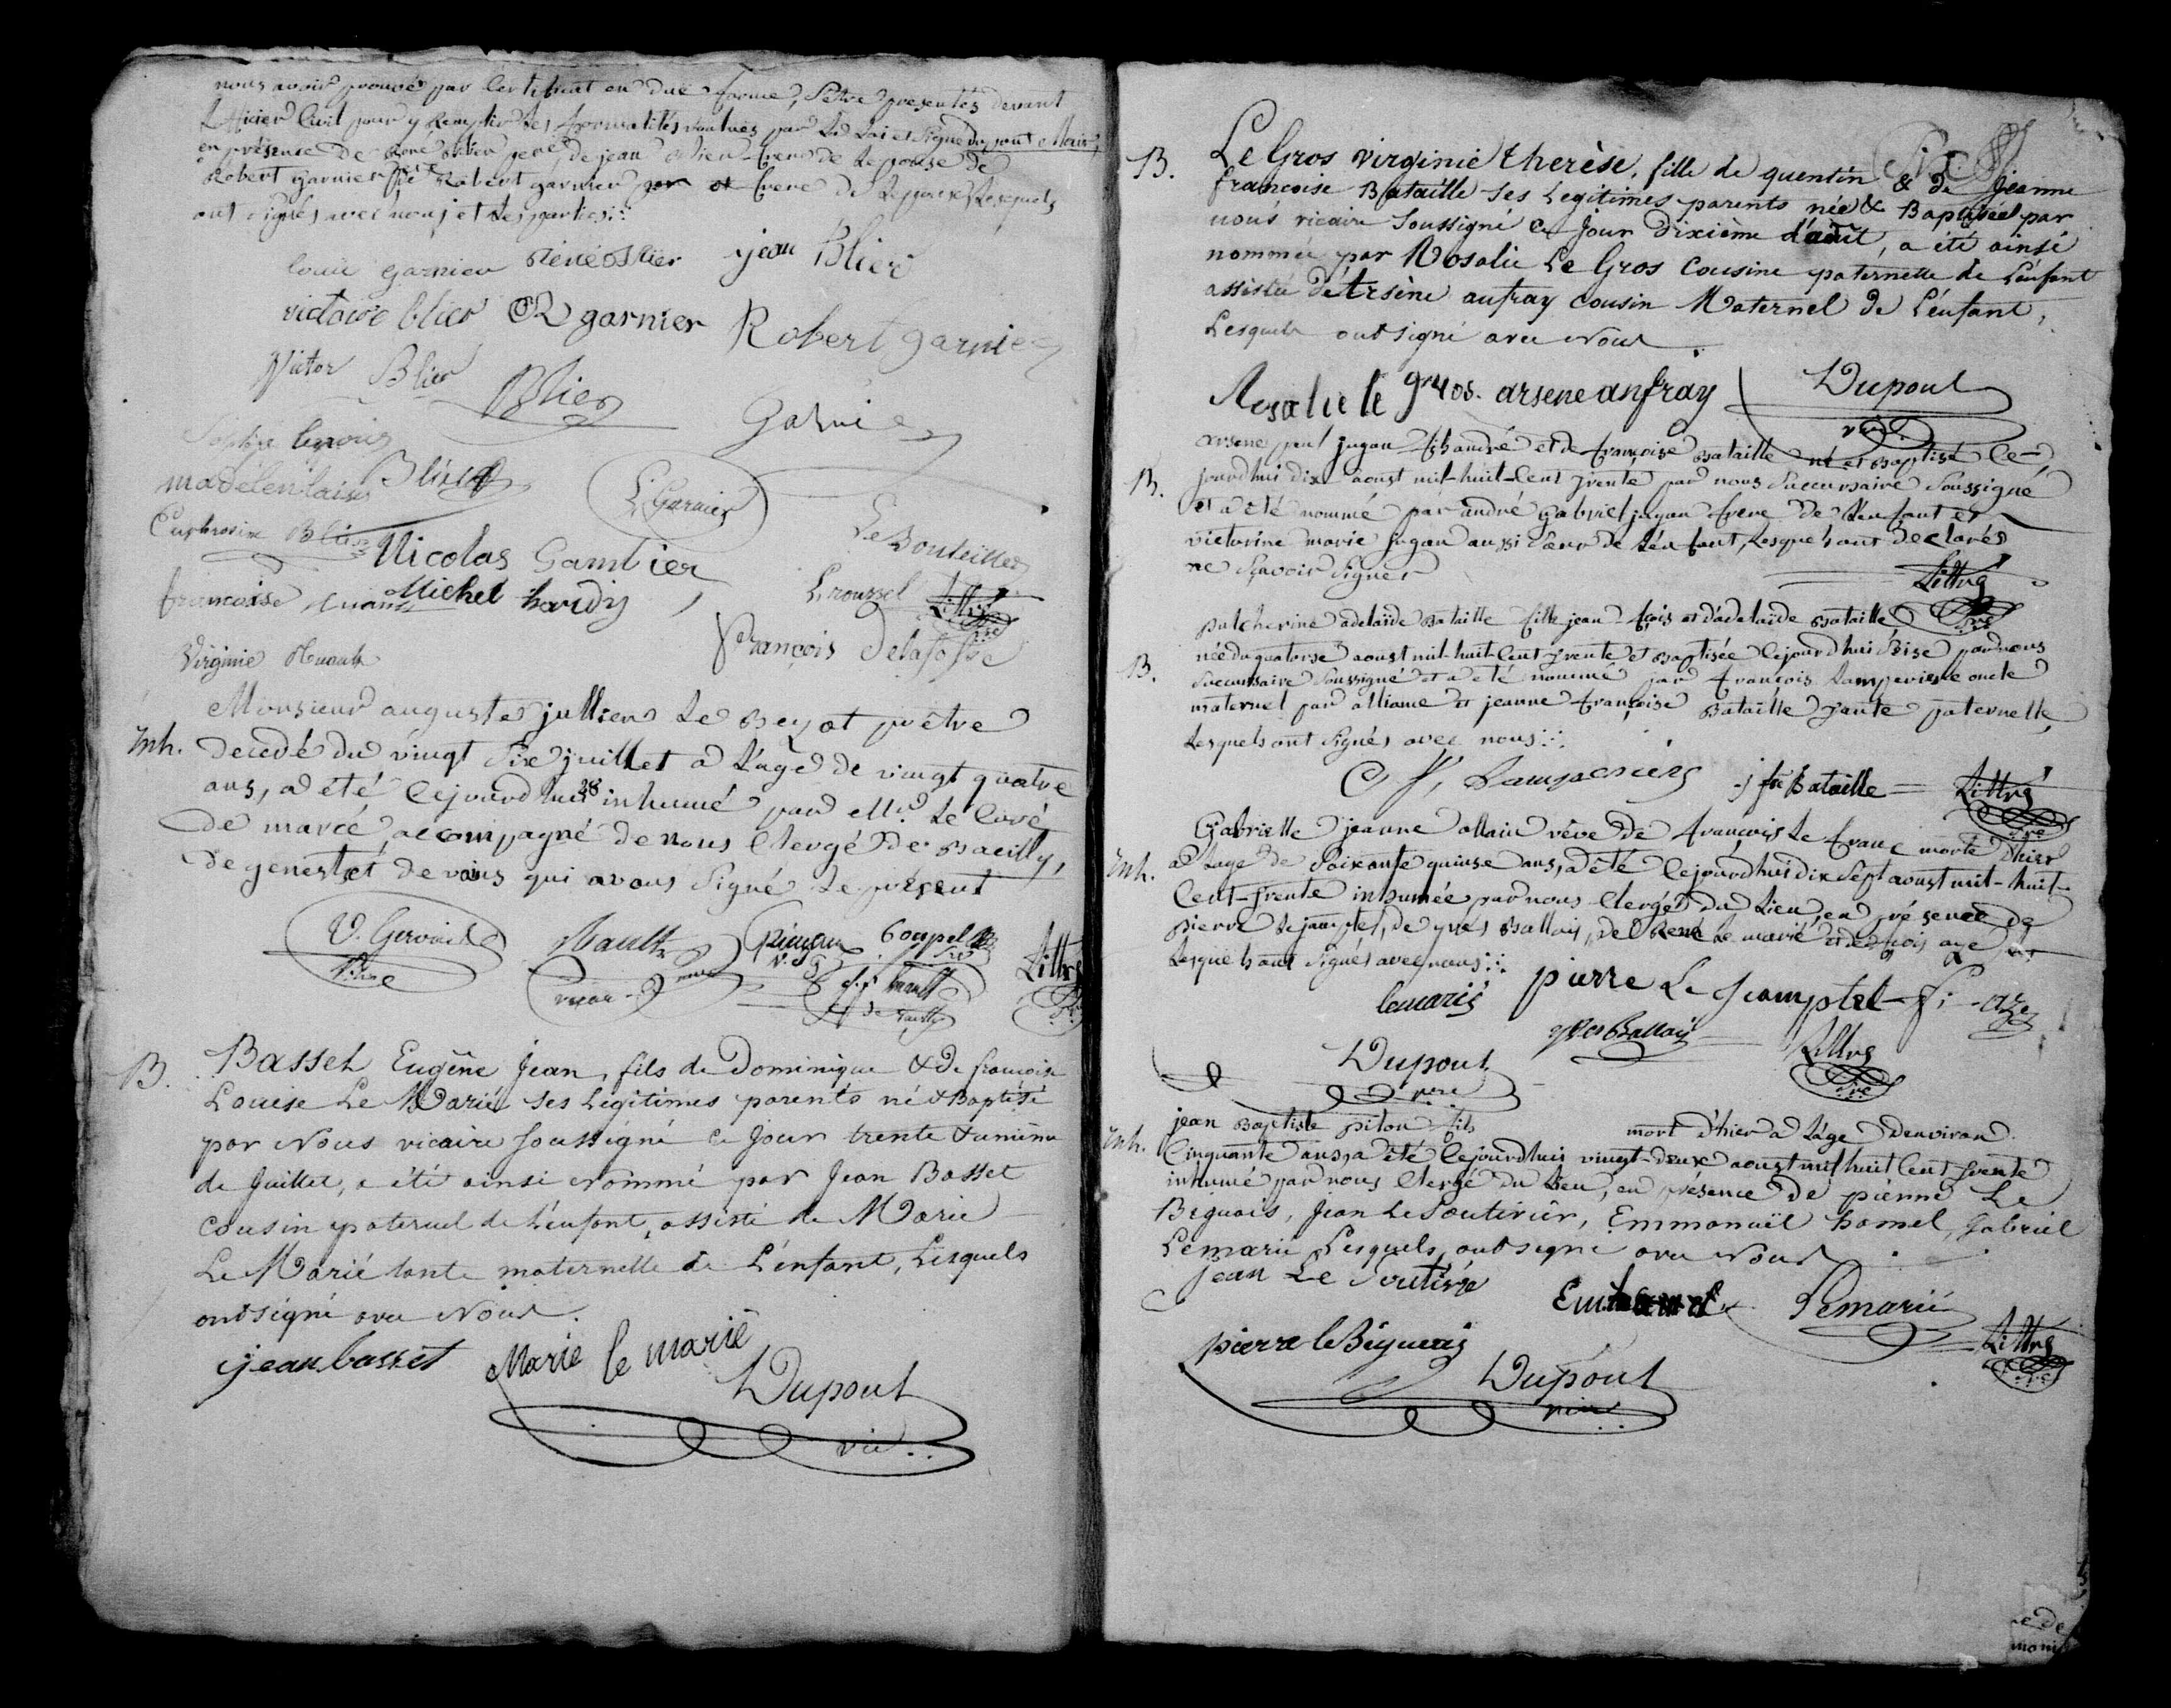 nous avoir prouvé par Certificat en due forme, s'être presentés devant
L'officier Civil pour y Remplir les formalités voulues par la Loi et Signé dupont Maire,
en présence de René Blier pere, de jean Blier frere de Lepouse de
Robert garnier pere Robert garnier frere de Lepoux Lesquels
ont signés avec nous et les parties
louis garnier René Blier jean Blier
victoire blier R garnier Robert garnier
Victor Blier Blier
Garnier
Sophie
madelenlaine Blier
L. Garnier
Euphrosine Blier
Nicolas Gambier
Le Bouteiller
francoise huault Michel hardy
L. roussel Littré
pre
François Delafosse
Virginie Huault
Monsieur auguste jullien Le Bezot prêtre
Inh. Decedé du vingt Six juillet a L'age de vingt quatre
ans, a été Cejourd'hui 28 inhumé par Mr. Le Curé
de marcé, accompagné de nous Clergé de Bacilly,
de genest et de vains qui avons Signé le present
V. Gervais
Pbre
Nault
Goupel
Littré
B. Basset Eugêne Jean, fils de Dominique & de francoise
Louise Le Marié ses Legitimes parents né & Baptisé
par Nous vicaire soussigné ce Jour trente & unième
de Juillet, a été ainsi Nommé par Jean Basset
Cousin paternel de L'enfant, assisté de Marie
Le Marié tante maternelle de L'enfant, Lesquels
ont signé avec Nous.
jean basset Marie le marié
Dupont
vic.
B. Le Gros virginie therèse, fille de quentin & de Jeanne
francoise Bataille ses Legitimes parents née & Baptisée par
nous vicaire soussigné ce Jour dixième d'août, a été ainsi
nommée par Rosalie Le Gros Cousine paternelle de L'enfant
assistée d'Arsène anfray cousin Maternel de L'enfant,
Lesquels ont signé avec Nous
Rosalie le gros. arsene anfray Dupont
vic.
arsene paul jugan fils andré et de francoise Bataille né et Baptisé Ce
B. jourdhui dix aoust mil-huit-Cent trente par nous Succursaire Soussigné
et a été nommé par andré gabriel jugan frere de L'enfant et
victorine marie jugan aussi Soeur de L'enfant, Lesquels ont declarés
ne Sçavoir Signer
Littré
pre
pulcherine adelaïde Bataille fille jean fçois et d'adelaïde Bataille,
née du quatorse aoust mil-huit-Cent trente et Baptisée Cejourdhui Seise par nous
B. Succursaire Soussigné et a été nommé par françois Lamperiere oncle
maternel par alliance et jeanne françoise Bataille tante paternelle,
Lesquels ont Signés avec nous
C. f. Lamperiere j fse Bataille Littré
pre
Gabrielle jeanne allain vêve de françois Le franc morte d'hier
Inh. a L'age de Soixante quinse ans, a été Cejourdhui dix Sept aoust mil-huit-
Cent-trente inhumée par nous Clergé du Lieu, en présence de
pierre Lejamptel, de yves Ballais, de René Le marié et de fçois aze
Lesquels ont Signés avec nous
lemarié pierre Le Jamptel f. aze
yves Ballais
Dupont Littré
pre
jean Baptiste piton fils mort d'hier a L'age d'environ
Inh. Cinquante ans, a été Cejourdhui vingt-deux aoust mil huit Cent trente
inhumé par nous Clergé du Lieu, en présence de pierre Le
Biguais, Jean Le Soutivier, Emmanuël hamel, Gabriel
Lemarié Lesquels ont signé avec Nous
Jean Le Lemarié
pierre le Biguais Littré
Dupont
vic.